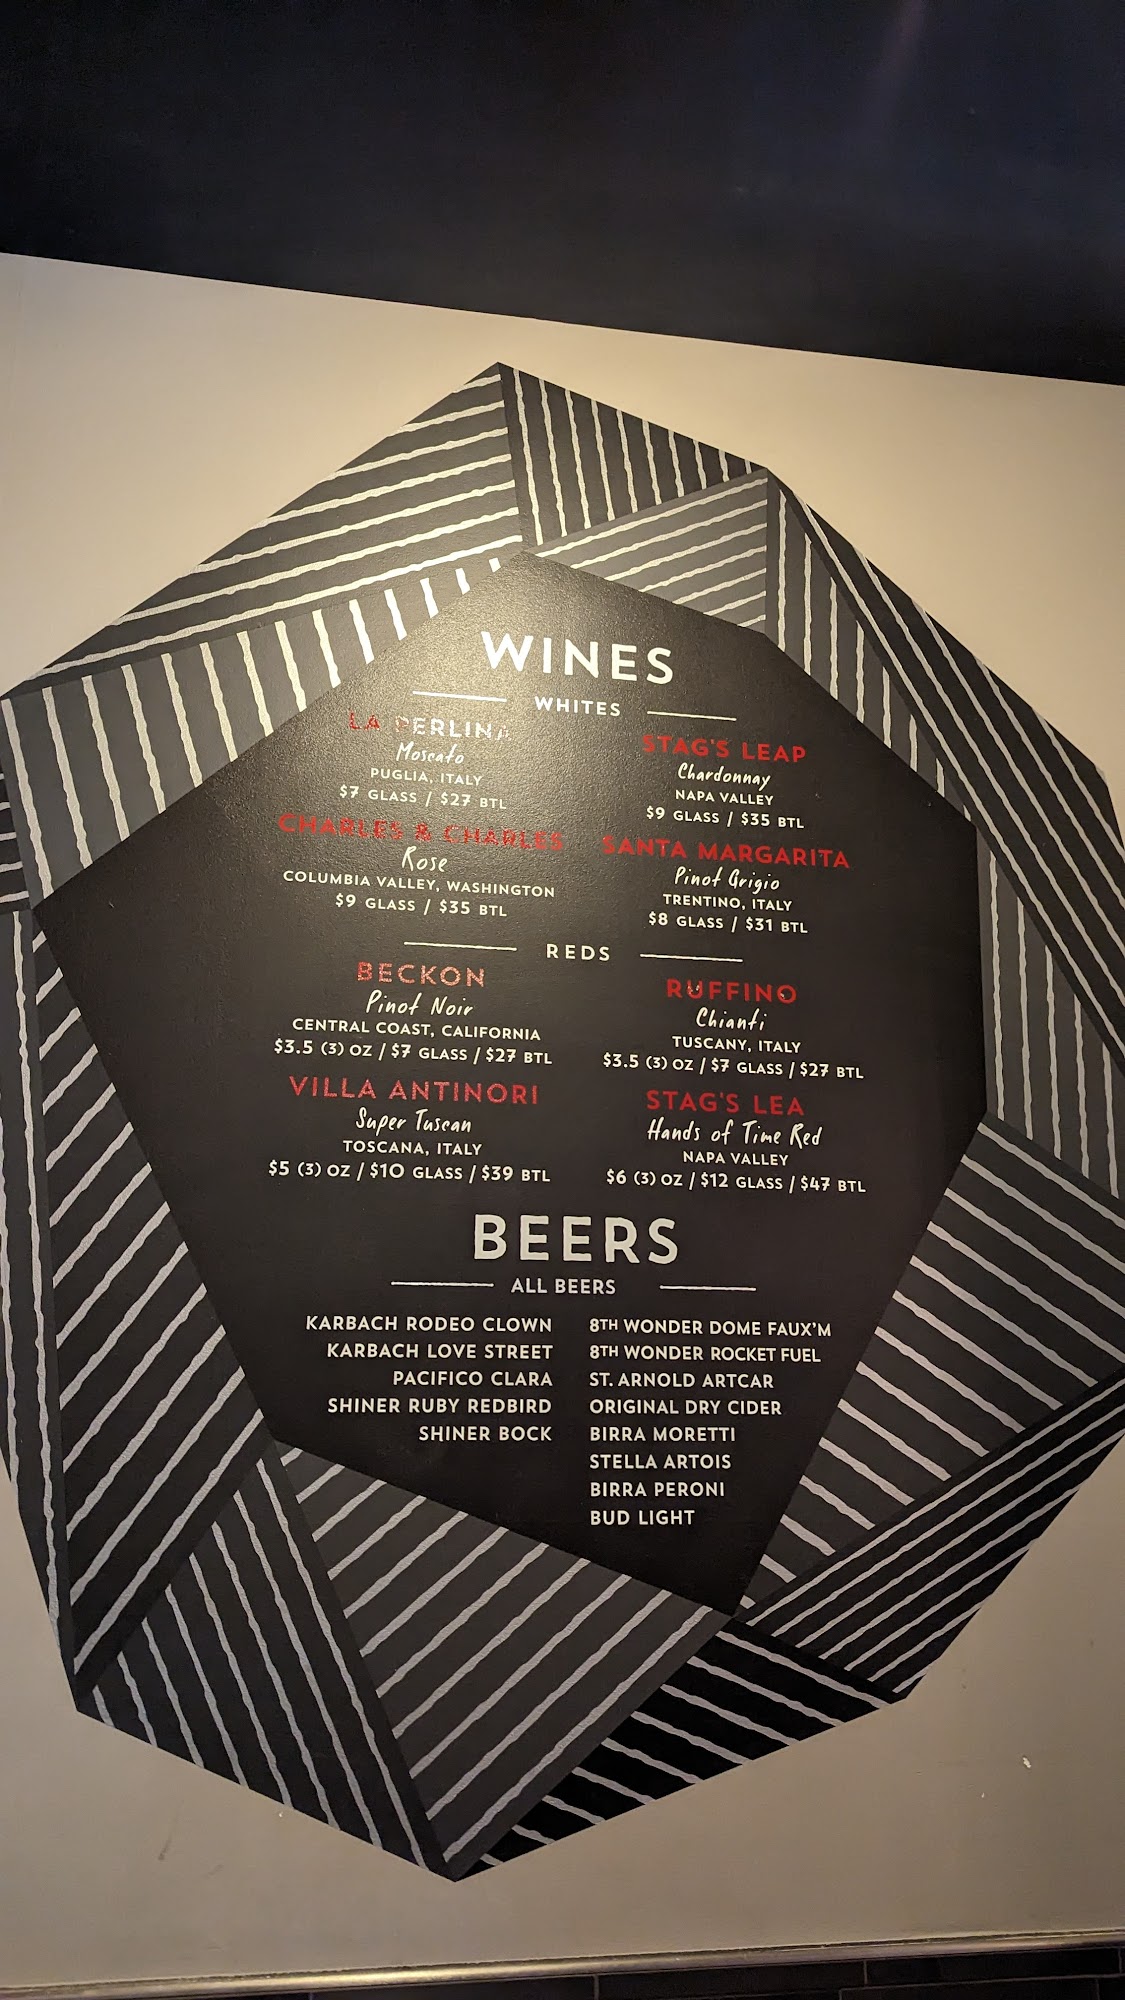 WINES
WHITES
LA PERLINA
Moscato
PUGLIA, ITALY
$7 GLASS / $27 BTL
STAG'S LEAP
Chardonnay
NAPA VALLEY
$9 GLASS / $35 BTL
CHARLES & CHARLES
Rose
COLUMBIA VALLEY, WASHINGTON
$9 GLASS / $35 BTL
SANTA MARGARITA
Pinot Grigio
TRENTINO, ITALY
$8 GLASS / $31 BTL
REDS
BECKON
Pinot Noir
CENTRAL COAST, CALIFORNIA
$3.5 (3) OZ / $7 GLASS / $27 BTL
RUFFINO
Chianti
TUSCANY, ITALY
$3.5 (3) OZ / $7 GLASS / $27 BTL
VILLA ANTINORI
Super Tuscan
TOSCANA, ITALY
$5 (3) OZ / $10 GLASS / $39 BTL
STAG'S LEA
Hands of Time Red
NAPA VALLEY
$6 (3) OZ / $12 GLASS / $47 BTL
BEERS
ALL BEERS
KARBACH RODEO CLOWN
KARBACH LOVE STREET
PACIFICO CLARA
SHINER RUBY REDBIRD
SHINER BOCK
8TH WONDER DOME FAUX'M
8TH WONDER ROCKET FUEL
ST. ARNOLD ARTCAR
ORIGINAL DRY CIDER
BIRRA MORETTI
STELLA ARTOIS
BIRRA PERONI
BUD LIGHT